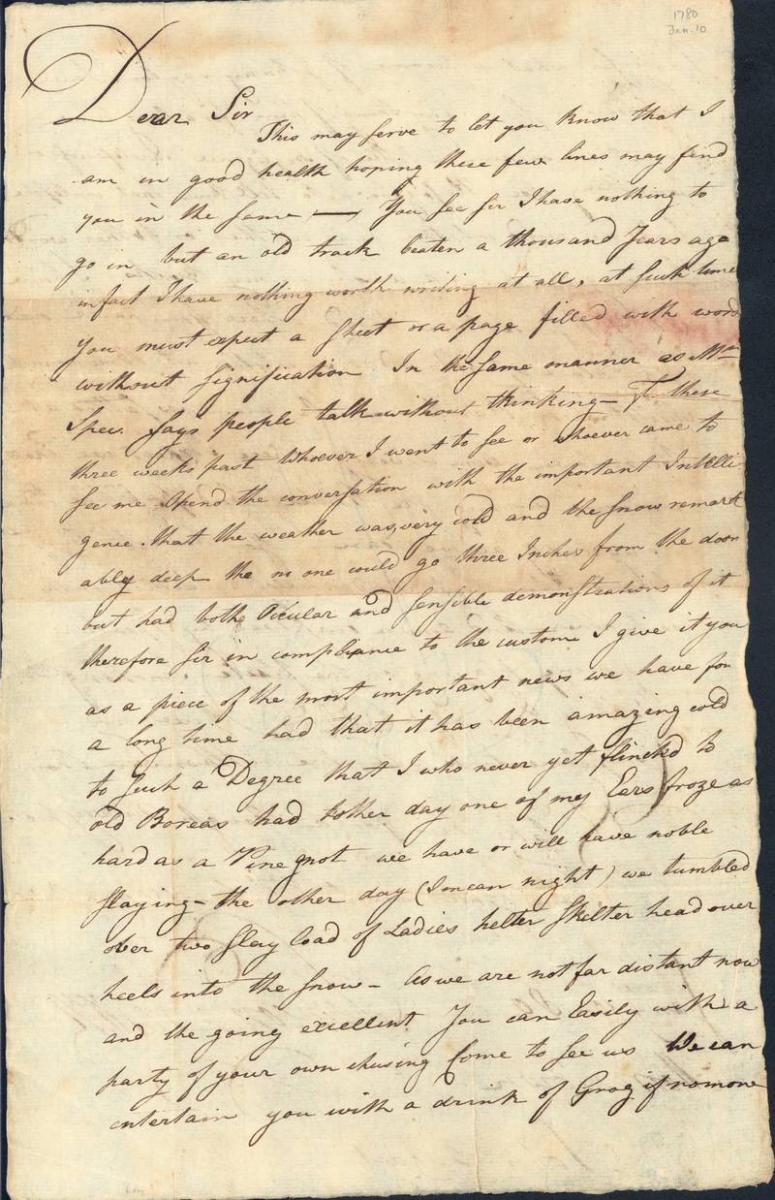 1780
Jan. 10
Dear Sir
This may serve to let you know that I
am in good health hoping these few lines may find
you in the same — You see sir I have nothing to
go in but an old track beaten a thousand Years ago
infact I have nothing worth writing at all, at such time
you must expect a sheet or a page filled with word
without signification In the same manner as Mrs
Spec. says people talk without thinking —
 these
three weeks past Whoever I went to see or whoever came to
see me Opend the conversation with the important Intelli
gence. that the weather was very cold and the snow remark
ably deep tho no one could go three Inches from the door
but had both Occular and sensible demonstrations of it
therefore sir in compliance to the custome I give it you
as a piece of the most important news we have for
a long time had that it has been amazing cold
to such a Degree that I who never yet flinched to
old Boreas had tother day one of my Ears froze as
hard as a Pine gnot we have or will have noble
slaying – the other day (I mean night) we tumbled
over two slay load of Ladies helter skelter head over
heels into the snow – As we are not far distant now
and the going excellent You can Easily with a
party of your own chusing Come to see us We can
entertain you with a drink of Grog if no more